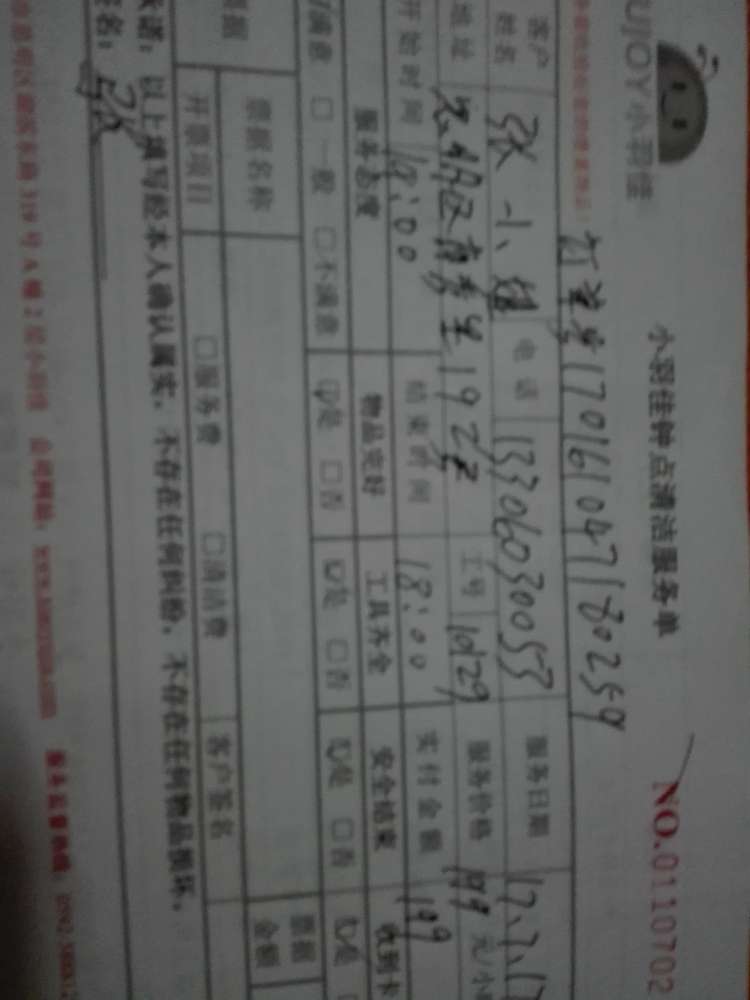 UJOY小羽佳
小羽佳钟点清洁服务单
NO.0110702
订单号170161047180259
客户姓名 张小姐 电话 13306030053 服务日期 17.7.17
地址 工号 10129 服务价格 199 元/小
开始时间 18:00 结束时间 18:00 实付金额 199
服务态度 物品完好 工具齐全 安全结束 收到卡
满意 □一般 □不满意 是 □否 是 □否 是 □否 是
票据名称 票据金额
开票项目 □服务费 □清洁费 客户签名
承诺：以上填写经本人确认属实，不存在任何纠纷，不存在任何物品损坏。
签名：张
319号A幢2层小羽佳 公司网站：